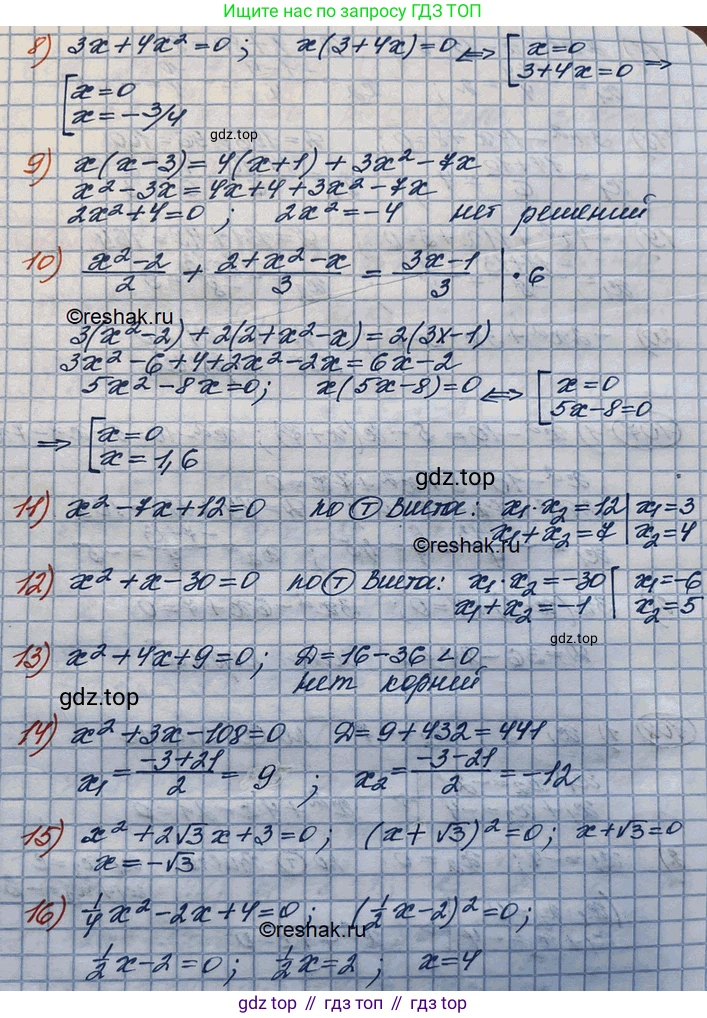 Ищите нас по запросу ГДЗ ТОП
8) 3x + 4x² = 0 ; x(3 + 4x) = 0 ⟺ [ x = 0
3 + 4x = 0 ⟹
[ x = 0
x = -3/4
9) x(x - 3) = 4(x + 1) + 3x² - 7x
x² - 3x = 4x + 4 + 3x² - 7x
2x² + 4 = 0 ; 2x² = -4 нет решений
10) (x² - 2)/2 + (2 + x² - x)/3 = (3x - 1)/3 | · 6
©reshak.ru
3(x² - 2) + 2(2 + x² - x) = 2(3x - 1)
3x² - 6 + 4 + 2x² - 2x = 6x - 2
5x² - 8x = 0 ; x(5x - 8) = 0 ⟺ [ x = 0
5x - 8 = 0
⟹ [ x = 0
x = 1,6
gdz.top
11) x² - 7x + 12 = 0 по Ⓣ Виета: x₁ · x₂ = 12 | x₁ = 3
x₁ + x₂ = 7 | x₂ = 4
©reshak.ru
12) x² + x - 30 = 0 по Ⓣ Виета: x₁ · x₂ = -30 [ x₁ = -6
x₁ + x₂ = -1 x₂ = 5
gdz.top
13) x² + 4x + 9 = 0 ; D = 16 - 36 < 0
нет корней
gdz.top
14) x² + 3x - 108 = 0 D = 9 + 432 = 441
x₁ = (-3 + 21)/2 = 9 ; x₂ = (-3 - 21)/2 = -12
15) x² + 2√3 x + 3 = 0 ; (x + √3)² = 0 ; x + √3 = 0
x = -√3
16) 1/4 x² - 2x + 4 = 0 ; (1/2 x - 2)² = 0 ;
©reshak.ru
1/2 x - 2 = 0 ; 1/2 x = 2 ; x = 4
gdz.top // гдз топ // gdz.top